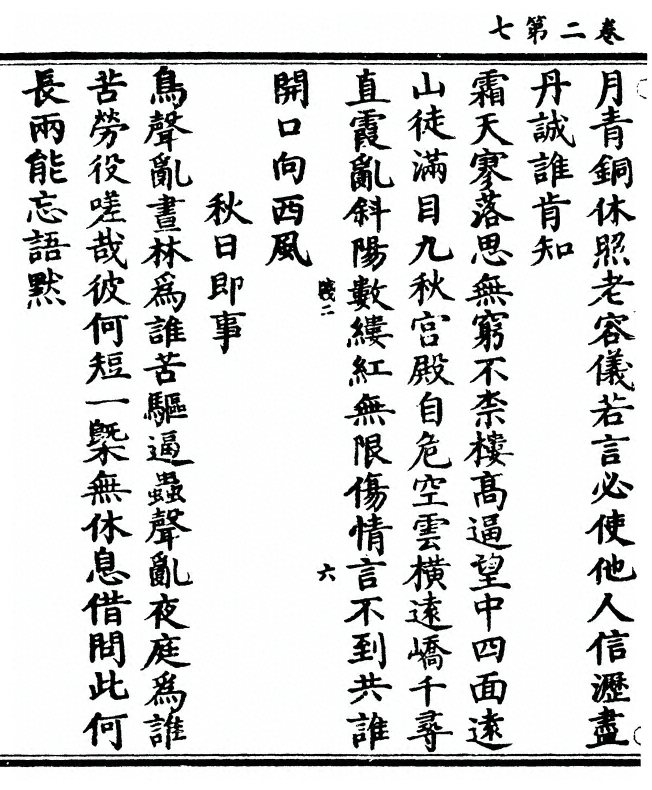 卷二第七
月青銅休照老容儀若言必使他人信瀝盡
丹誠誰肯知
霜天寥落思無窮不柰樓高逼望中四面遠
山徒滿目九秋宮殿自危空雲橫遠嶠千尋
直霞亂斜陽數縷紅無限傷情言不到共誰
賤二 六
開口向西風
秋日即事
鳥聲亂晝林爲誰苦驅逼蟲聲亂夜庭爲誰
苦勞役嗟哉彼何短一槩無休息借問此何
長兩能忘語默